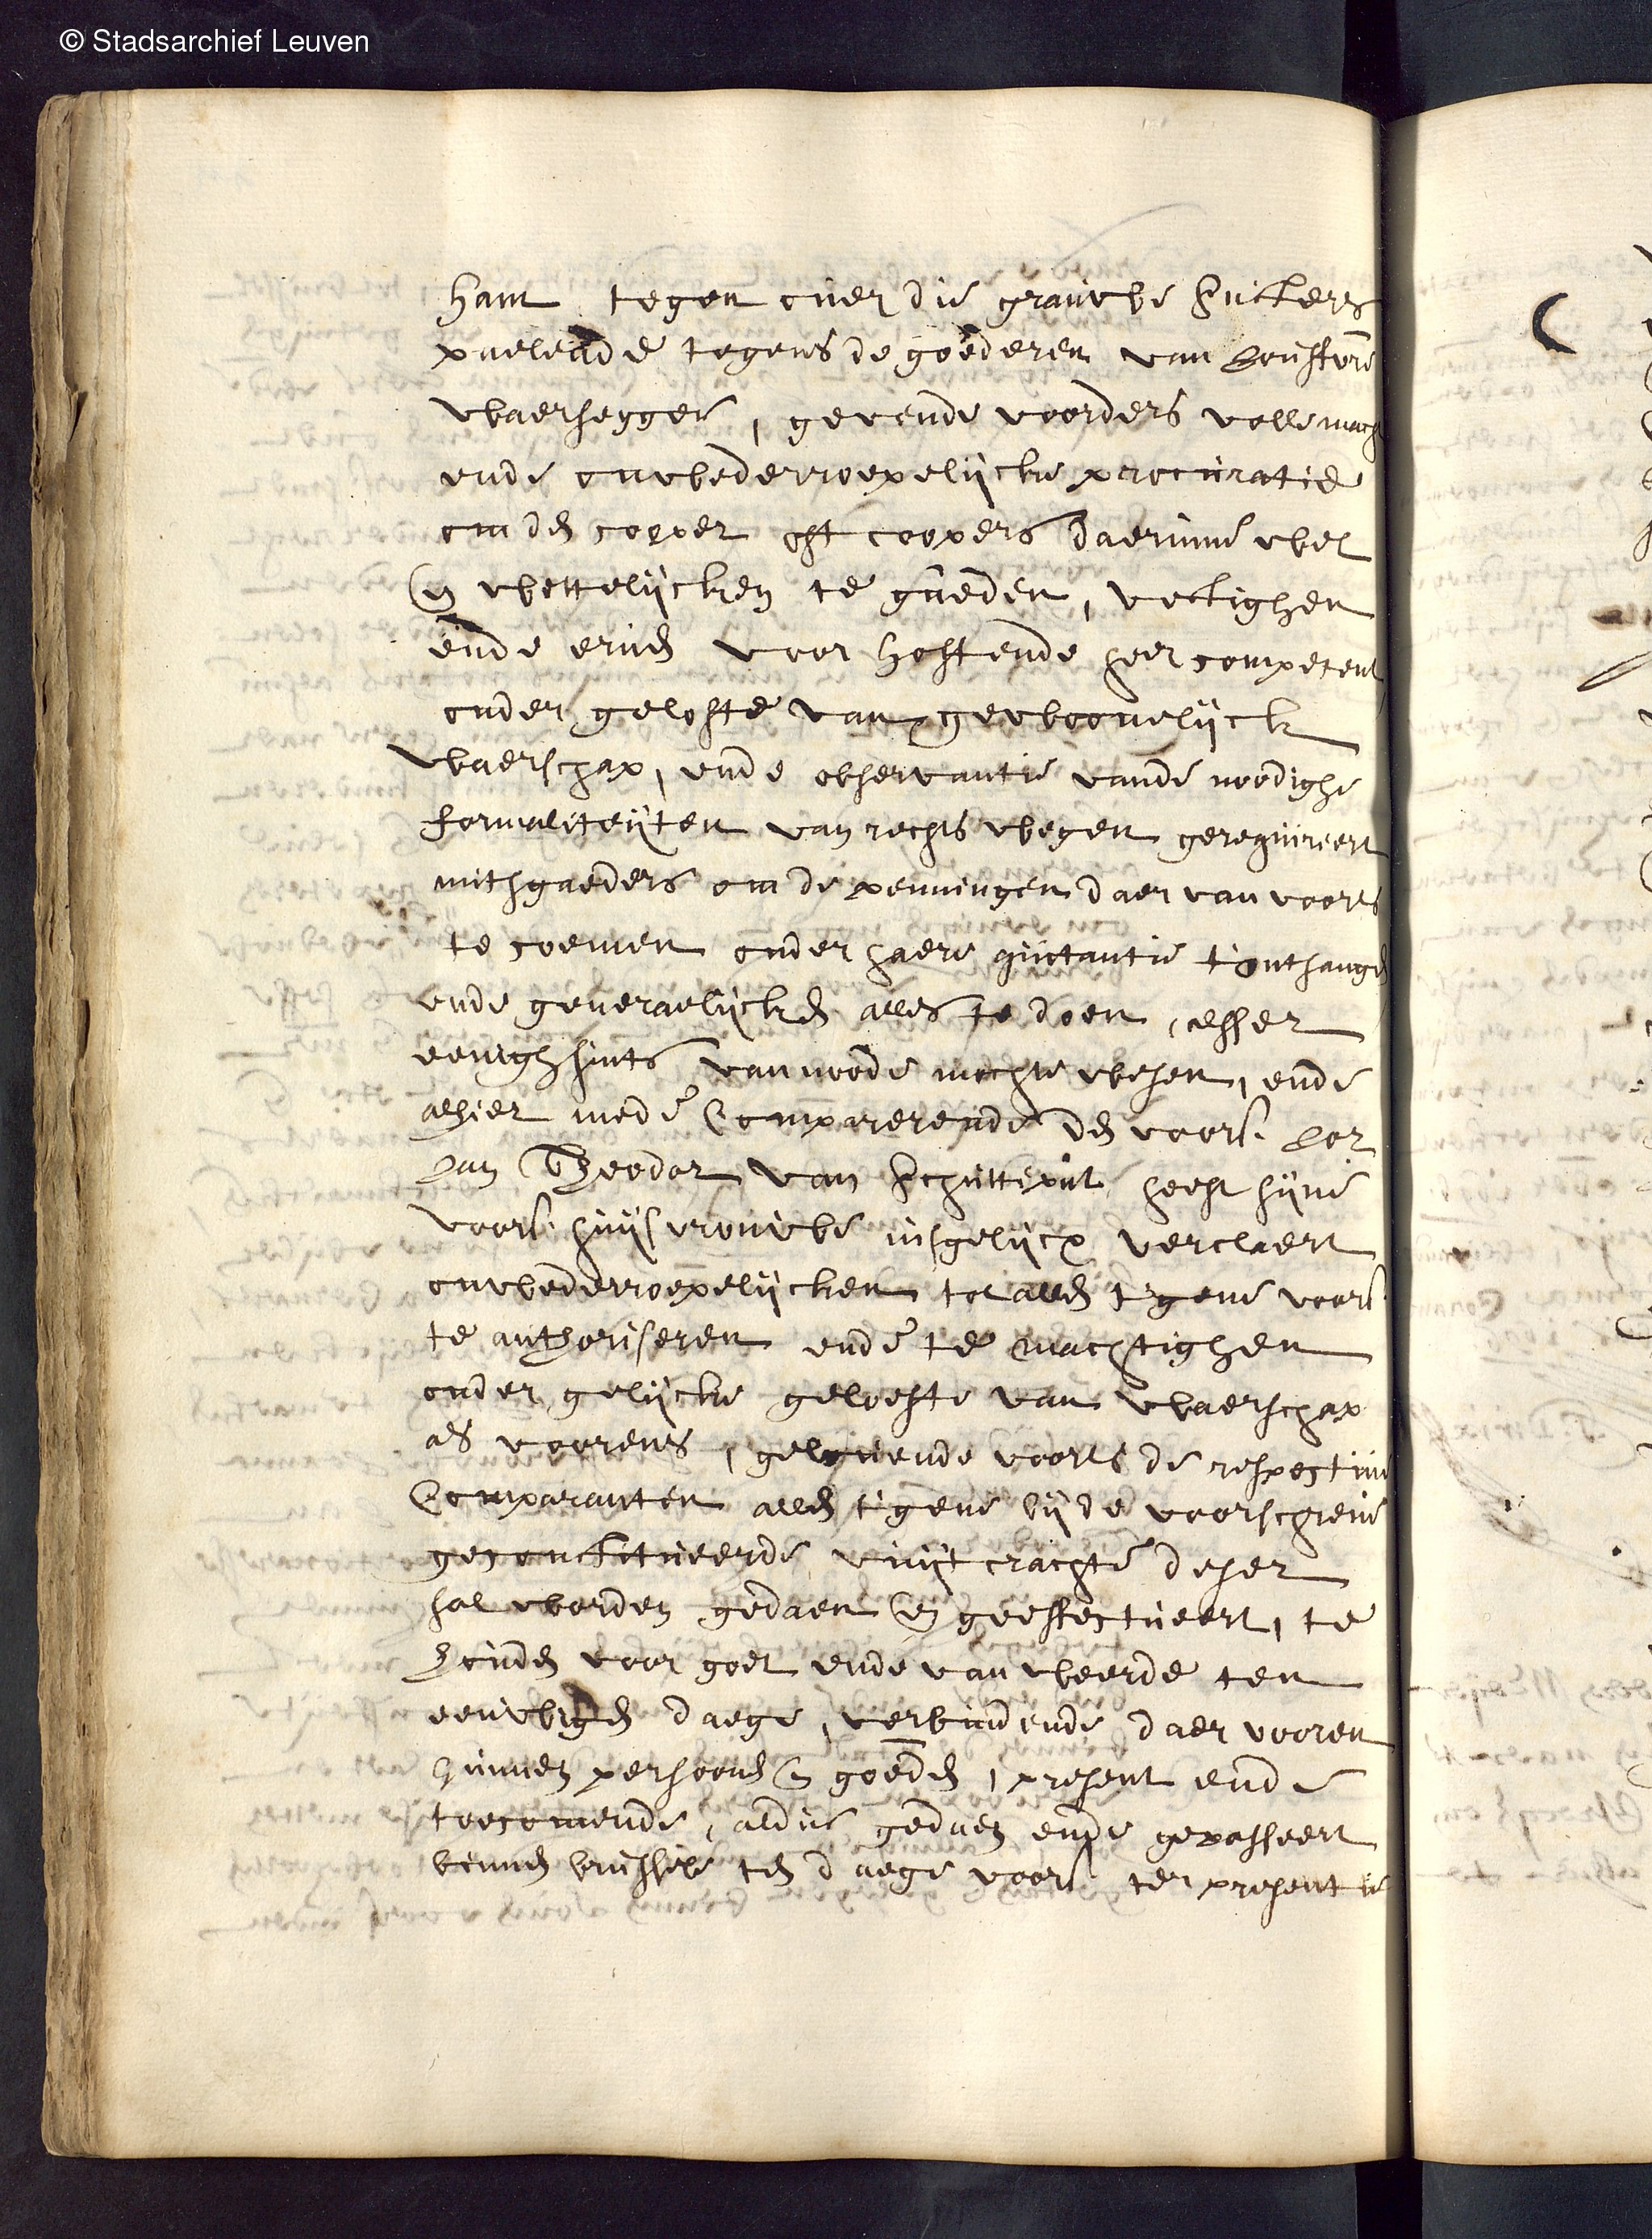 © Stadsarchief Leuven
ham tegen over die grauwe susters
paelende tegens de goederen van
waersegger, gevende voorders volle macht
ende onwederroepelijcke procuratie
om den cooper oft coopers daerinne wel
en wettelijcken te goeden, vestighen
ende erven voor hoff ende heer competent
onder gelofte van gewoonelijck
waerschap, ende observantie vande noodighe
formaliteijten van rechts wegen gerequireert
mitsgaeders om de penningen daer van voorts
te coemen onder haere quictantie t'ontfangen
ende generaelijcken alles te doen, alffer
eenighsints van noode mochte wesen, ende
alhier mede Comparerende den voors.
Jan Theodor van Schutteput heeft sijne
voors. huijsvrouwe insgelijcx verclaert
onwederroepelijcken tot allen tgene voors.
te authoriseren ende te machtighen
onder gelijcke geloefte van waerschap
als voorens, gelovende voorts de respective
Comparanten allen tgene bij de voorschreve
geconstitueerde vuijt crachte deser
sal worden gedaen en geeffectueert, te
houden voor goet ende van weerde ten
eeuwigen daege, verbindende daer vooren
hunnen persoonen en goeden, present ende
toecomende, aldus gedaen ende gepasseert
binnen brussele ten daege voors. ter presentie